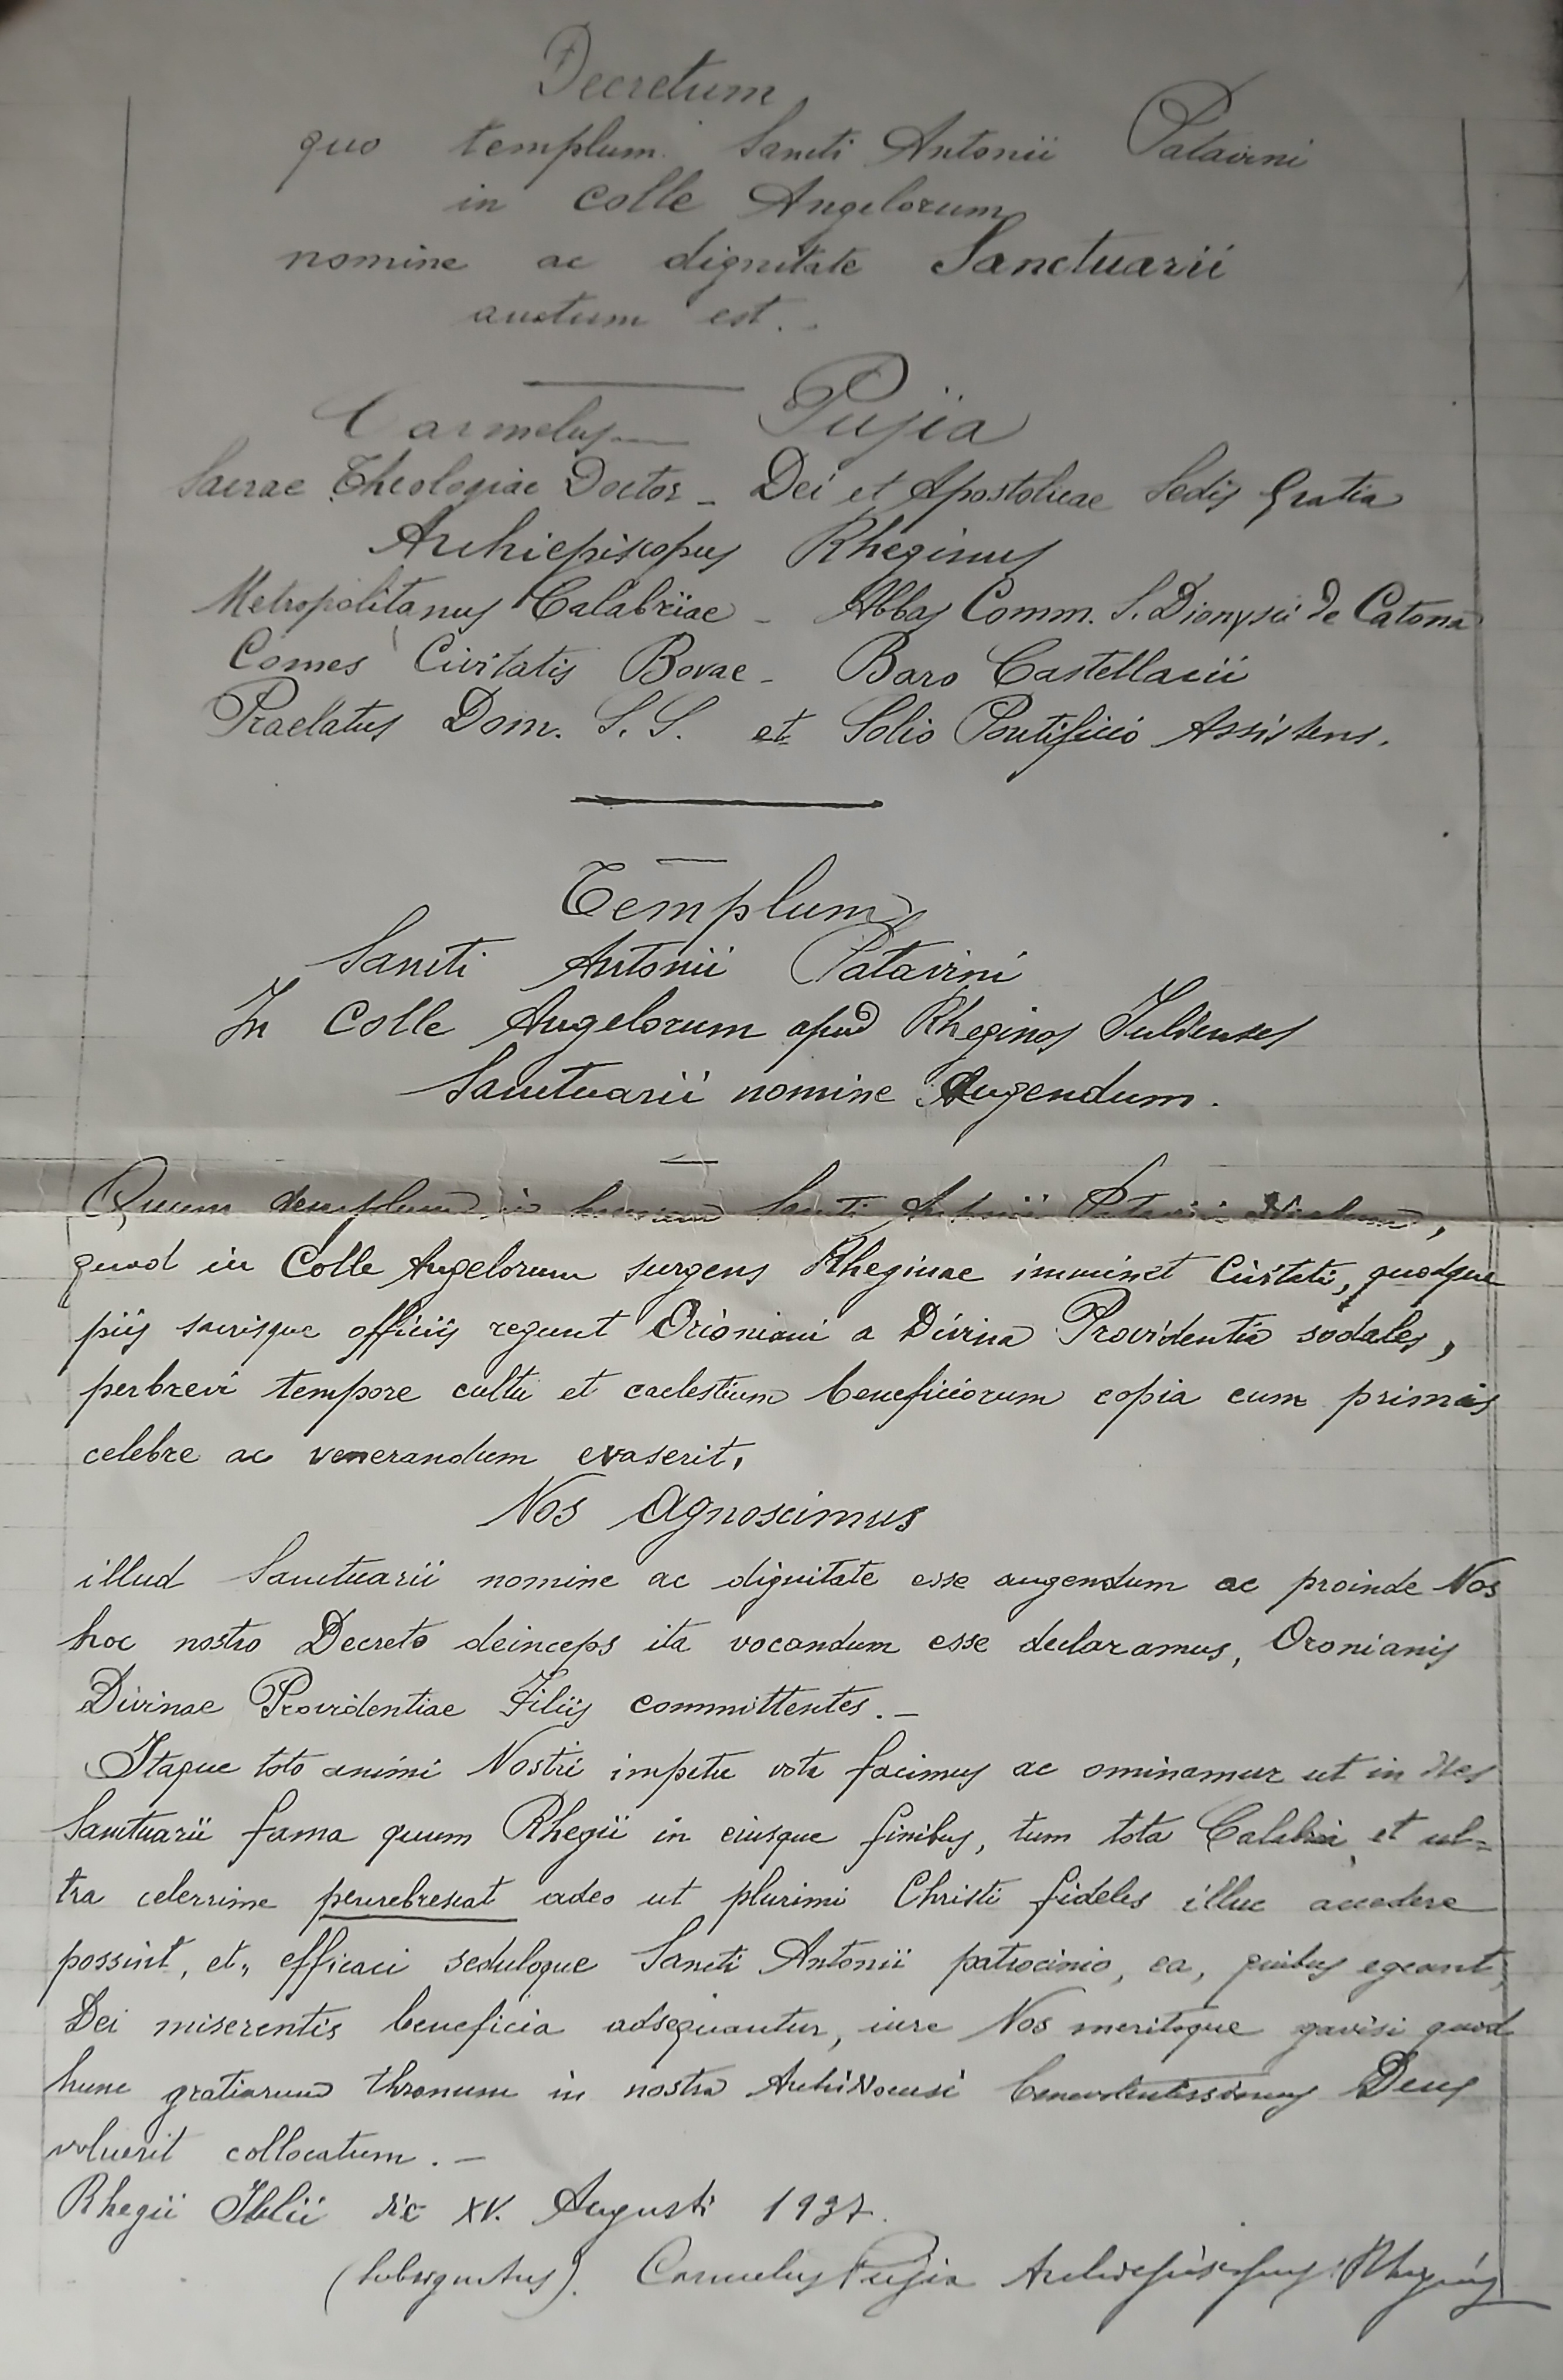 Decretum
quo templum Sancti Antonii Patavini
in Colle Angelorum
nomine ac dignitate Sanctuarii
auctum est.
Carmelus Pujia
Sacrae Theologiae Doctor - Dei et Apostolicae Sedis Gratia
Archiepiscopus Rheginus
Metropolitanus Calabriae - Abbas Comm. S. Dionysii de Catona
Comes Civitatis Bovae - Baro Castellacii
Praelatus Dom. S. S. et Solio Pontificio Assistens.
Templum
Sancti Antonii Patavini
In Colle Angelorum apud Rheginos Juldenses
Sanctuarii nomine Augendum.
Quum templum in Sancti Antonii Patavini
quod in Colle Angelorum surgens Rheginae imminet Civitati, quodque
piis sacrisque officiis regunt Orioniani a Divina Providentia sodales,
perbrevi tempore cultu et caelestium beneficiorum copia cum primis
celebre ac venerandum evaserit,
Nos Agnoscimus
illud Sanctuarii nomine ac dignitate esse augendum ac proinde Nos
hoc nostro Decreto deinceps ita vocandum esse declaramus, Oronianis
Divinae Providentiae Filiis committentes. -
Itaque toto animi Nostri impetu vota facimus ac ominamur ut in dies
Sanctuarii fama quum Rhegii in eiusque finibus, tum tota Calabria et ul=
tra celerrime percrebrescat adeo ut plurimi Christi fideles illuc accedere
possint, et, efficaci seduloque Sancti Antonii patrocinio, ea, quibus egeant,
Dei miserentis beneficia adsequantur, iure Nos meritoque gavisi quod
hunc gratiarum thronum in nostra Archidioecesi benevolentissimus Deus
voluerit collocatum. -
Rhegii die XV. Augusti 1937.
(subsignatus). Carmelus Pujia Archiepiscopus Rheginus